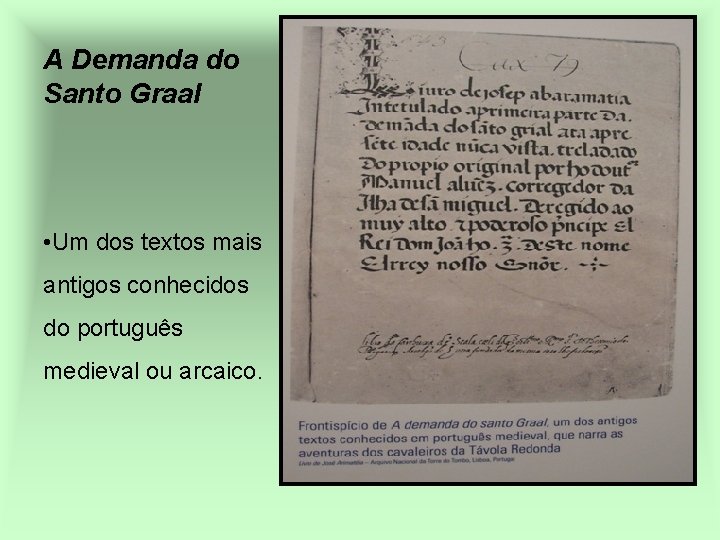 A Demanda do
Santo Graal
•Um dos textos mais
antigos conhecidos
do português
medieval ou arcaico.
Liuro de josep abaramatia
Intetulado aprimeira parte da
demãda do sãto grial ata apre
sẽte idade nũca vista. treladado
Do propio original por ho dout
Manuel aluez. corregedor da
Ilha de sã miguel. Deregido ao
muy alto & poderoso prĩcipe El
Rei dom Joãho. 3. deste nome
El rrey nosso Snõr.
Frontispício de A demanda do santo Graal, um dos antigos
textos conhecidos em português medieval, que narra as
aventuras dos cavaleiros da Távola Redonda
Livro de José Arimatéia – Arquivo Nacional da Torre do Tombo, Lisboa, Portugal